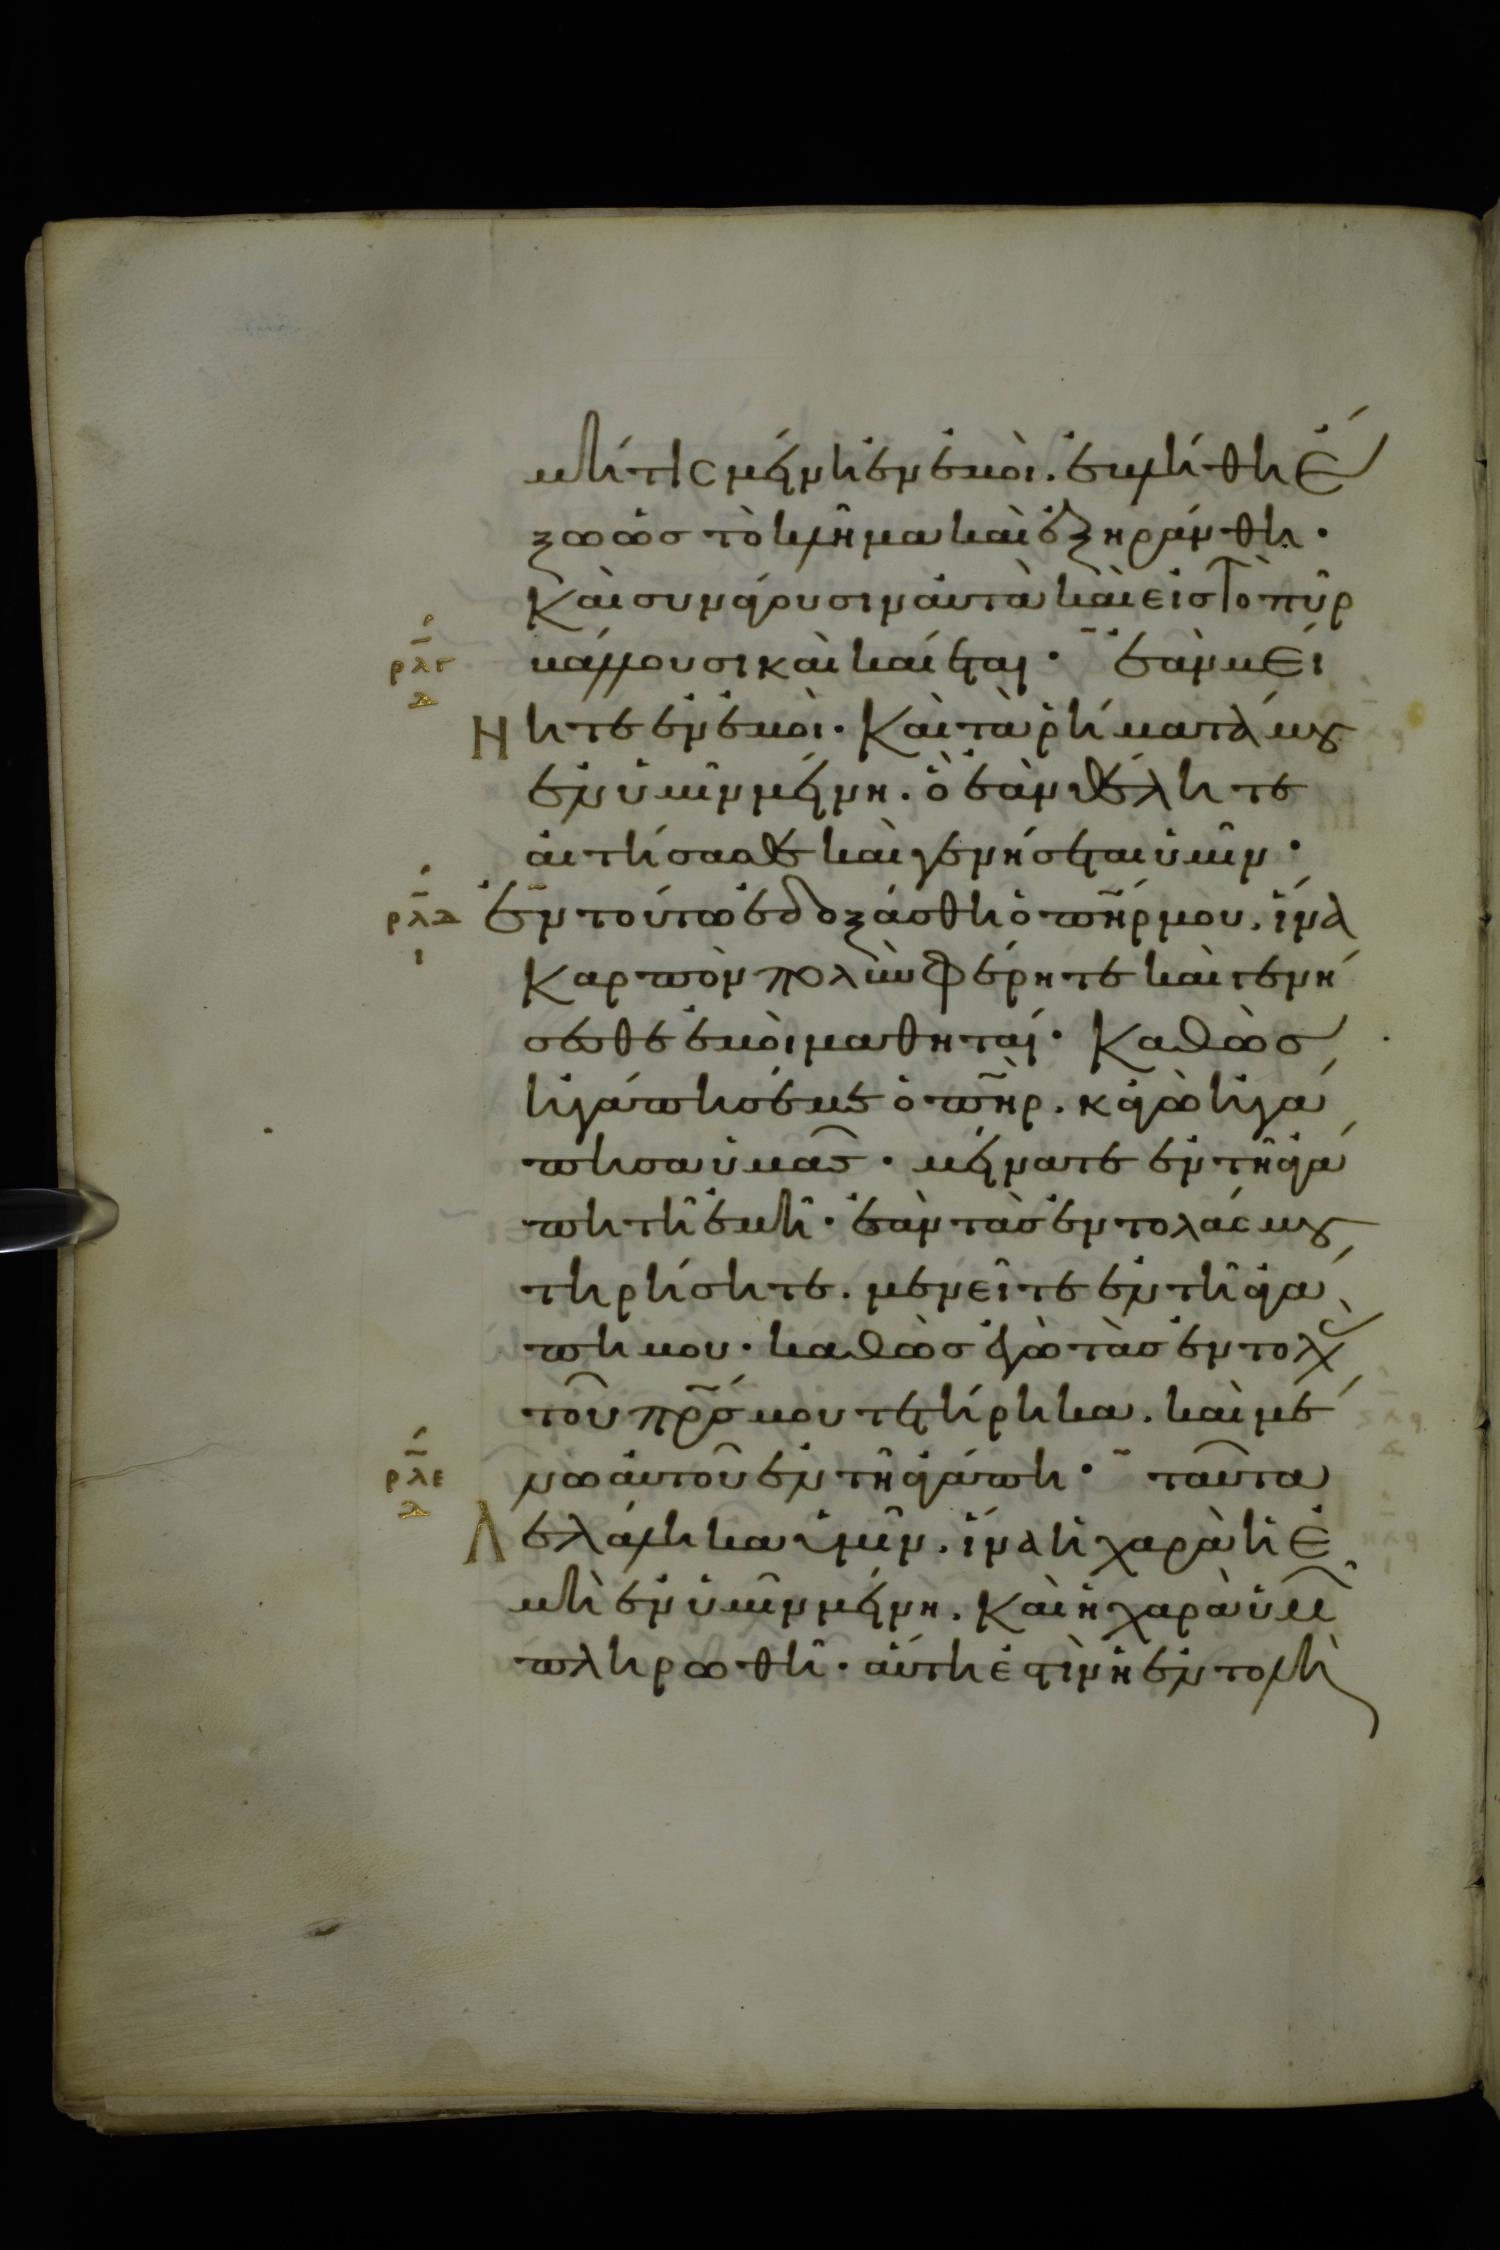 μή τις μένη ἐν ἐμοὶ. ἐβλήθη ἔ
ξω ὡσ τὸ κλῆμα καὶ ἐξηράνθη·
Καὶ συνάγουσιν αὐτὰ καὶ εἰσ τὸ πῦρ
ρλγ
βάλλουσι καὶ καίεται· ἐὰν μεί
δ
νητε ἐν ἐμοὶ. Καὶ τὰ ῥήματά μου
ἐν ὑμῖν μένη. ὃ ἐὰν θέλητε
αἰτήσασθε καὶ γενήσεται ὑμῖν·
ρλδ
ἐν τούτω ἐδοξάσθη ὁ πηρ μου. ἵνα
ι
Καρπὸν πολὺν φέρητε καὶ γενή
σεσθε ἐμοὶ μαθηταί· Καθὼσ
ἠγάπησέ με ὁ πηρ. κἀγὼ ἠγά
πησα ὑμᾶσ· μείνατε ἐν τῆ ἀγά
πη τῆ ἐμῆ· ἐὰν τὰσ ἐντολάς μου
τηρήσητε. μενεῖτε ἐν τῆ ἀγά
πη μου· καθὼσ ἐγὼ τὰσ ἐντολὰσ
τοῦ πρσ μου τετήρηκα. καὶ μέ
ρλε
νω αὐτοῦ ἐν τῆ ἀγάπη· ταῦτα
δ
λελάληκα ὑμῖν. ἵνα ἡ χαρὰ ἡ ἐ
μὴ ἐν ὑμῖν μένη. Καὶ ἡ χαρὰ ὑμῶν
πληρωθῆ· αὕτη ἐστὶν ἡ ἐντολὴ